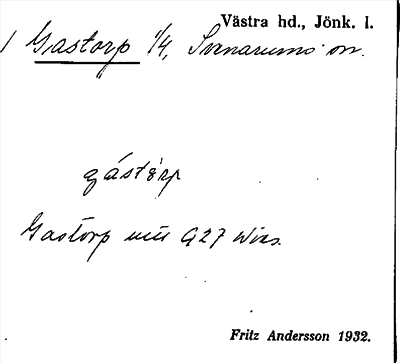 Västra hd., Jönk. l.
/ Gastorp 1/4, Svenarums sn.
gástòrp
Gastorp
Fritz Andersson 1932.